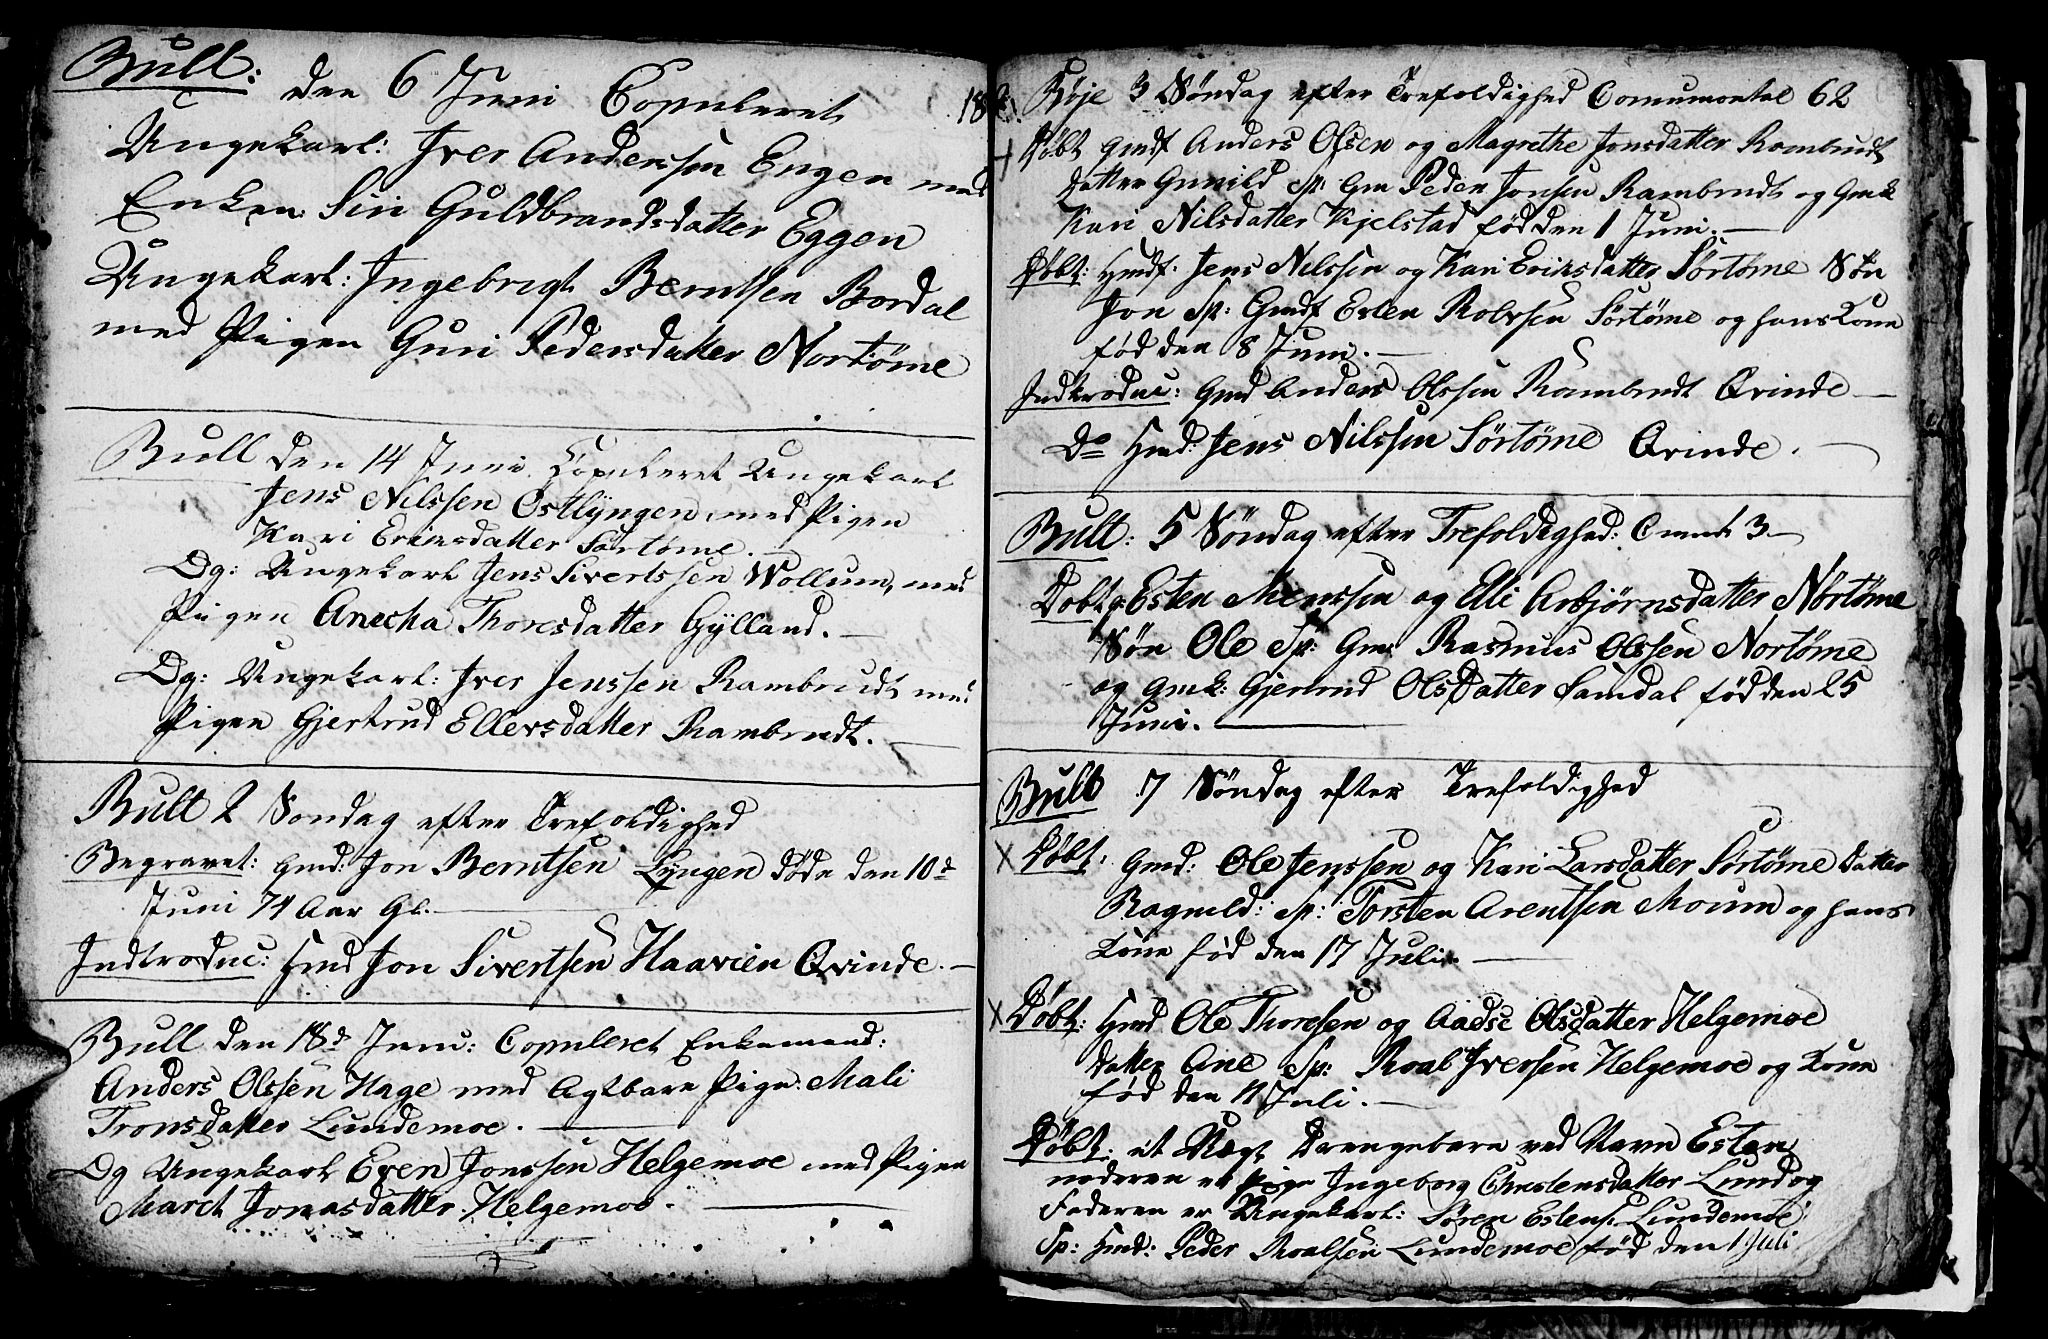 Bull:
den 6 Juni Copuleret
Ungekarl: Iver Andersen Engen med
Enken: Siri Guldbrandsdatter Eggen
Ungekarl: Ingebrigt Berntsen Bordal
med Pigen Guri Pedersdatter Nortömе
Bull den 14 Juni Copuleret Ungekarl
Jens Nilssen Ostlÿngen, med Pigen
Kari Ericsdatter Sørtøme.
Og: Ungekarl Jens Sivertssen Wollum, med
Pigen Anecha Thoresdatter Gÿlland.
Og: Ungekarl: Iver Jenssen Rambrudt med
Pigen Gjertrud Ellevsdatter Rambrudt.
Bull 2 Søndag efter Trefoldighed
Begravet: Gmd: Jon Berntsen Lÿngen døde den 10d
Juni 74 Aar Gl.
Indtroduc: Hmd Jon Sivertsen Haavien Qvinde.
Bull den 18d Juni: Copuleret Enkemand:
Anders Olssen Hage med Agtbare Pige: Mali
Tronsdatter Lundemoe.
Og Ungekarl Even Jonssen Helgemoe med Pigen
Maret Jonasdatter Helgemoe.
Böje 3 Søndag efter Trefoldighed Comumontal 62
Døbt gmdf Anders Olsen og Magrethe Jonsdatter Rambrudt
Datter Gunild Sp: Gm Peder Jonsen Rambrudt og Gmk
Kari Nilsdatter Kjelstad fød den 1 Juni.
Døbt: Hmdf: Jens Nilssen og Kari Ericsdatter Sørtøme Søn
Jon Sp: Gmdf Esten Rolvssen Sørtøme og hans Kone
fød den 8 Juni.
Indtroduc: Gmd Anders Olssen Rambrudt Qvinde
Do Hmd: Jens Nilssen Sørtøme Qvinde.
Bull: 5 Søndag efter Trefoldighed: Cmnt 3
Døbt Esten Monssen og Elli Arbjørnsdatter Nørtøme
Søn Ole Sp: Gm: Rasmus Olssen Nortøme
og Gmk: Gjertrud Olsdatter Samdal fød den 25
Juni.
Bull 7 Søndag efter Trefoldighed
X Døbt, Gmd: Ole Jenssen og Kari Larsdatter Sørtøme Datter
Ragnild: Sp: Torsten Arentsen Moum og hans
Kone fød den 17 Juli
X Døbt: Hmd Ole Thoresen og Aadse Olsdatter Helgemoe
Datter Ane Sp: Roal Iversen Helgemoe og Kone
fød den 11 Juli.
Døbt: et Uægt Drengebarn ved Navn Esten
moderen er Pige Ingeborg Christensdatter Lund og
Faderen er Ungekarl: Søren Estens: Lundemoe
Sp: Hmd: Peder Roalsen Lundemoe fød den 1 Juli